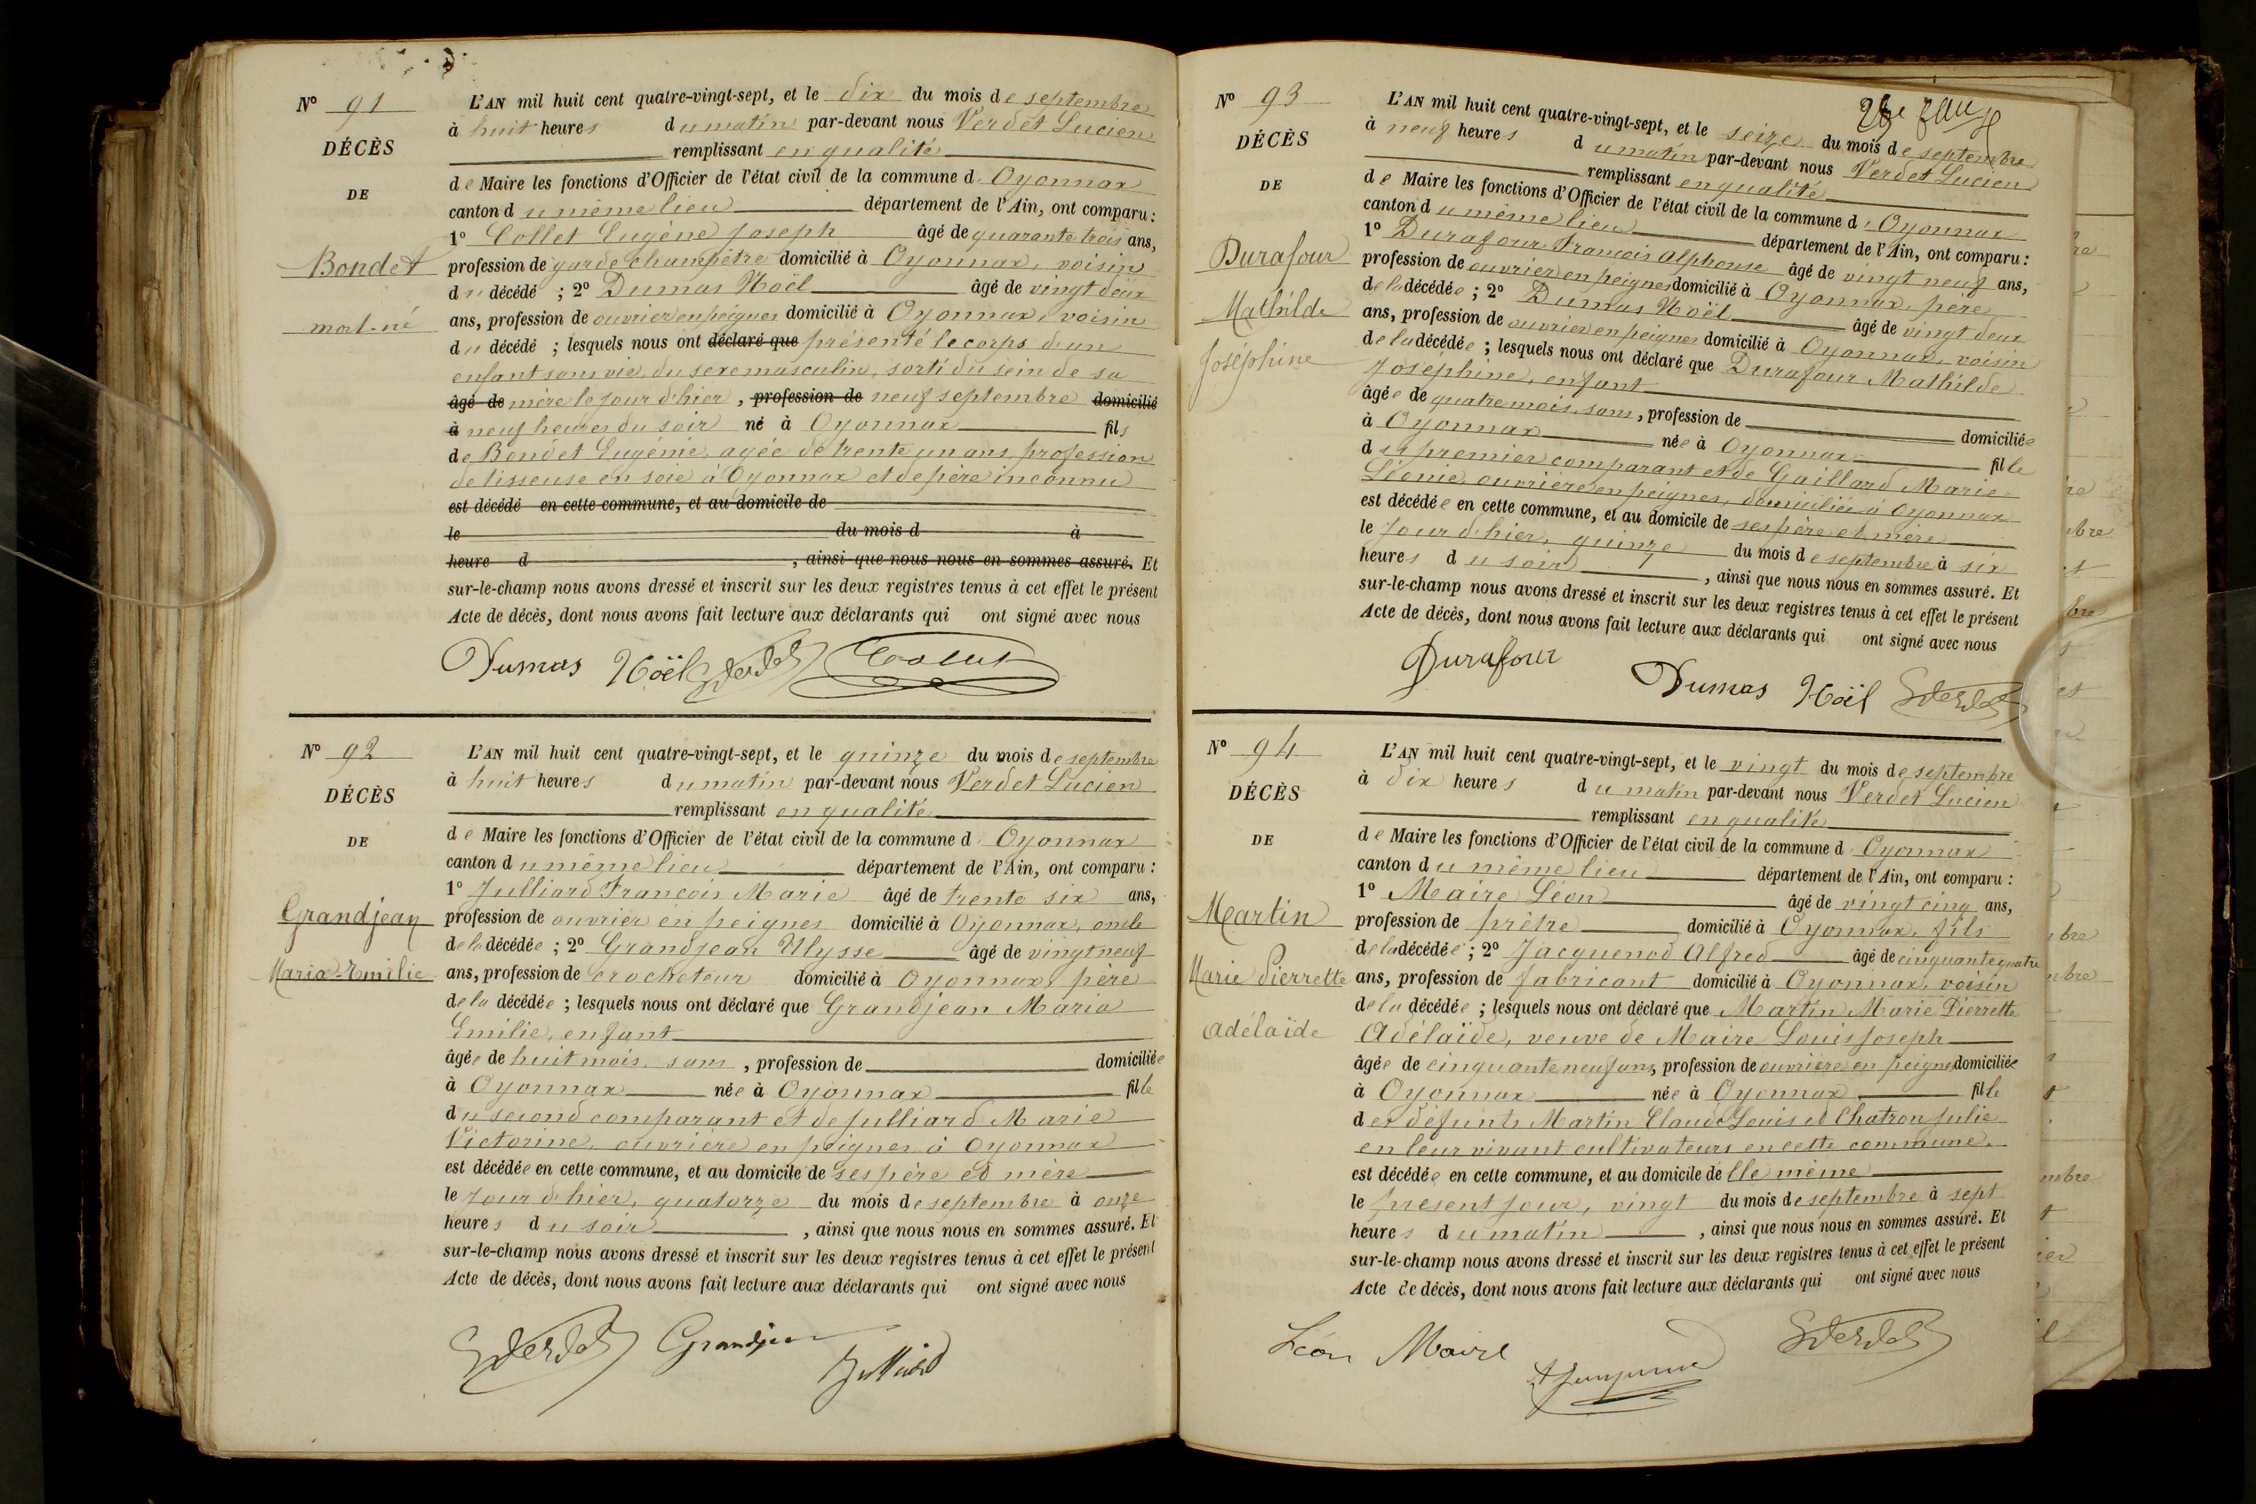 N° 91
DÉCÈS
DE
Bondet
mort-né
L'AN mil huit cent quatre-vingt-sept, et le dix du mois de septembre
à huit heures du matin par-devant nous Verdet Lucien
remplissant en qualité
de Maire les fonctions d'Officier de l'état civil de la commune d Oyonnax
canton du même lieu département de l'Ain, ont comparu :
1° Collet Eugène Joseph âgé de quarante trois ans,
profession de garde champêtre domicilié à Oyonnax, voisin
du décédé ; 2° Dumas Noël âgé de vingt deux
ans, profession de ouvrier en peignes domicilié à Oyonnax, voisin
du décédé ; lesquels nous ont déclaré que présenté le corps d'un
enfant sans vie, du sexe masculin, sorti du sein de sa
âgé de mère le jour d'hier, profession de neuf septembre domicilié
à neuf heures du soir né à Oyonnax fils
de Bondet Eugénie, agée de trente un ans, profession
de tisseuse en soie à Oyonnax et de père inconnu
est décédé en cette commune, et au domicile de
le du mois d à
heure d , ainsi que nous nous en sommes assuré. Et
sur-le-champ nous avons dressé et inscrit sur les deux registres tenus à cet effet le présent
Acte de décès, dont nous avons fait lecture aux déclarants qui ont signé avec nous
Dumas Noël Verdet Collet
N° 92
DÉCÈS
DE
Grandjean
Maria-Emilie
L'AN mil huit cent quatre-vingt-sept, et le quinze du mois de septembre
à huit heures du matin par-devant nous Verdet Lucien
remplissant en qualité
de Maire les fonctions d'Officier de l'état civil de la commune d Oyonnax
canton du même lieu département de l'Ain, ont comparu :
1° Julliard François Marie âgé de trente six ans,
profession de ouvrier en peignes domicilié à Oyonnax, oncle
de la décédée ; 2° Grandjean Ulysse âgé de vingt neuf
ans, profession de crocheteur domicilié à Oyonnax, père
de la décédée ; lesquels nous ont déclaré que Grandjean Maria
Emilie, enfant
âgée de huit mois, sans, profession de domiciliée
à Oyonnax née à Oyonnax fille
du second comparant et de Julliard Marie
Victorine, ouvrière en peignes à Oyonnax
est décédée en cette commune, et au domicile de ses père et mère
le jour d'hier, quatorze du mois de septembre à onze
heures du soir , ainsi que nous nous en sommes assuré. Et
sur-le-champ nous avons dressé et inscrit sur les deux registres tenus à cet effet le présent
Acte de décès, dont nous avons fait lecture aux déclarants qui ont signé avec nous
Verdet Grandjean Julliard
N° 93
DÉCÈS
DE
Durafour
Mathilde
Joséphine
L'AN mil huit cent quatre-vingt-sept, et le seize du mois de septembre
à neuf heures du matin par-devant nous Verdet Lucien
remplissant en qualité
de Maire les fonctions d'Officier de l'état civil de la commune d Oyonnax
canton du même lieu département de l'Ain, ont comparu :
1° Durafour François Alphonse âgé de vingt neuf ans,
profession de ouvrier en peignes domicilié à Oyonnax, père
de la décédée ; 2° Dumas Noël âgé de vingt deux
ans, profession de ouvrier en peignes domicilié à Oyonnax, voisin
de la décédée ; lesquels nous ont déclaré que Durafour Mathilde
Joséphine, enfant
âgée de quatre mois, sans, profession de domiciliée
à Oyonnax née à Oyonnax fille
du premier comparant et de Gaillard Marie
Léonie, ouvrière en peignes, domiciliée à Oyonnax
est décédée en cette commune, et au domicile de ses père et mère
le jour d'hier, quinze du mois de septembre à six
heures du soir , ainsi que nous nous en sommes assuré. Et
sur-le-champ nous avons dressé et inscrit sur les deux registres tenus à cet effet le présent
Acte de décès, dont nous avons fait lecture aux déclarants qui ont signé avec nous
Durafour
Dumas Noël Verdet
N° 94
DÉCÈS
DE
Martin
Marie Pierrette
Adélaïde
L'AN mil huit cent quatre-vingt-sept, et le vingt du mois de septembre
à dix heures du matin par-devant nous Verdet Lucien
remplissant en qualité
de Maire les fonctions d'Officier de l'état civil de la commune d Oyonnax
canton du même lieu département de l'Ain, ont comparu :
1° Maire Léon âgé de vingt cinq ans,
profession de prêtre domicilié à Oyonnax, fils
de la décédée ; 2° Jacquenod Alfred âgé de cinquante quatre
ans, profession de fabricant domicilié à Oyonnax, voisin
de la décédée ; lesquels nous ont déclaré que Martin Marie Pierrette
Adélaïde, veuve de Maire Louis Joseph
âgée de cinquante neuf ans, profession de ouvrière en peignes domiciliée
à Oyonnax née à Oyonnax fille
des défunts Martin Claude Louis et Chatron Julie
en leur vivant cultivateurs en cette commune.
est décédée en cette commune, et au domicile de elle même
le présent jour, vingt du mois de septembre à sept
heures du matin , ainsi que nous nous en sommes assuré. Et
sur-le-champ nous avons dressé et inscrit sur les deux registres tenus à cet effet le présent
Acte de décès, dont nous avons fait lecture aux déclarants qui ont signé avec nous
Léon Maire Verdet